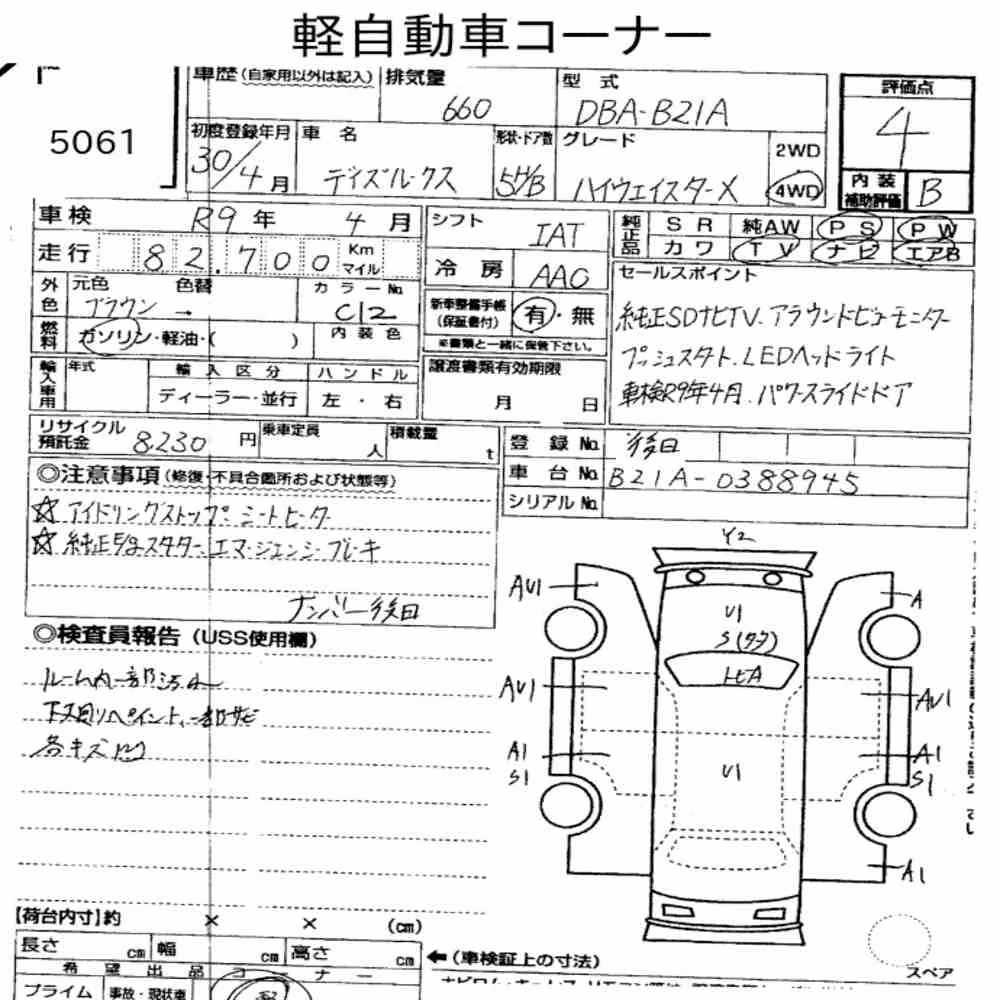 軽自動車コーナー
5061
車歴 (自家用以外は記入) 排気量 660 型式 DBA-B21A 評価点 4
初度登録年月 30/4月 車名 デイズルークス 形状・ドア数 5H/B グレード ハイウェイスターX 2WD 4WD 内装補助評価 B
車検 R9年 4月 シフト IAT 純正品 SR 純AW PS PW
カワ TV ナビ エアB
走行 82,700 Km マイル 冷房 AAC セールスポイント
外色 元色 ブラウン 色替 → カラーNo. C12 新車整備手帳(保証書付) 有・無
純正SDナビTV、アラウンドビューモニター
燃料 ガソリン・軽油・( ) 内装色 ※書類と一緒に保管下さい。
プッシュスタート、LEDヘッドライト
輸入車用 年式 輸入区分 ハンドル 譲渡書類有効期限
車検R9年4月 パワースライドドア
ディーラー・並行 左・右 月 日
リサイクル預託金 8230円 乗車定員 人 積載量 t 登録No. 後日
車台No. B21A-0388945
シリアルNo.
◎注意事項 (修復・不具合箇所および状態等)
☆ アイドリングストップ シートヒーター
☆ 純正 スターター、エマージェンシーブレーキ
ナンバー後日
◎検査員報告 (USS使用欄)
ルーム内一部汚れ
下廻りペイント、一部サビ
各キズ凹
Y2
AU1 A
U1
S(タッチ)
トビA
AU1 AU1
A1 A1
S1 U1 S1
A1
スペア
【荷台内寸】約 × × (cm)
長さ cm 幅 cm 高さ cm ←(車検証上の寸法)
希望出品コーナー
プライム 事故・現状車